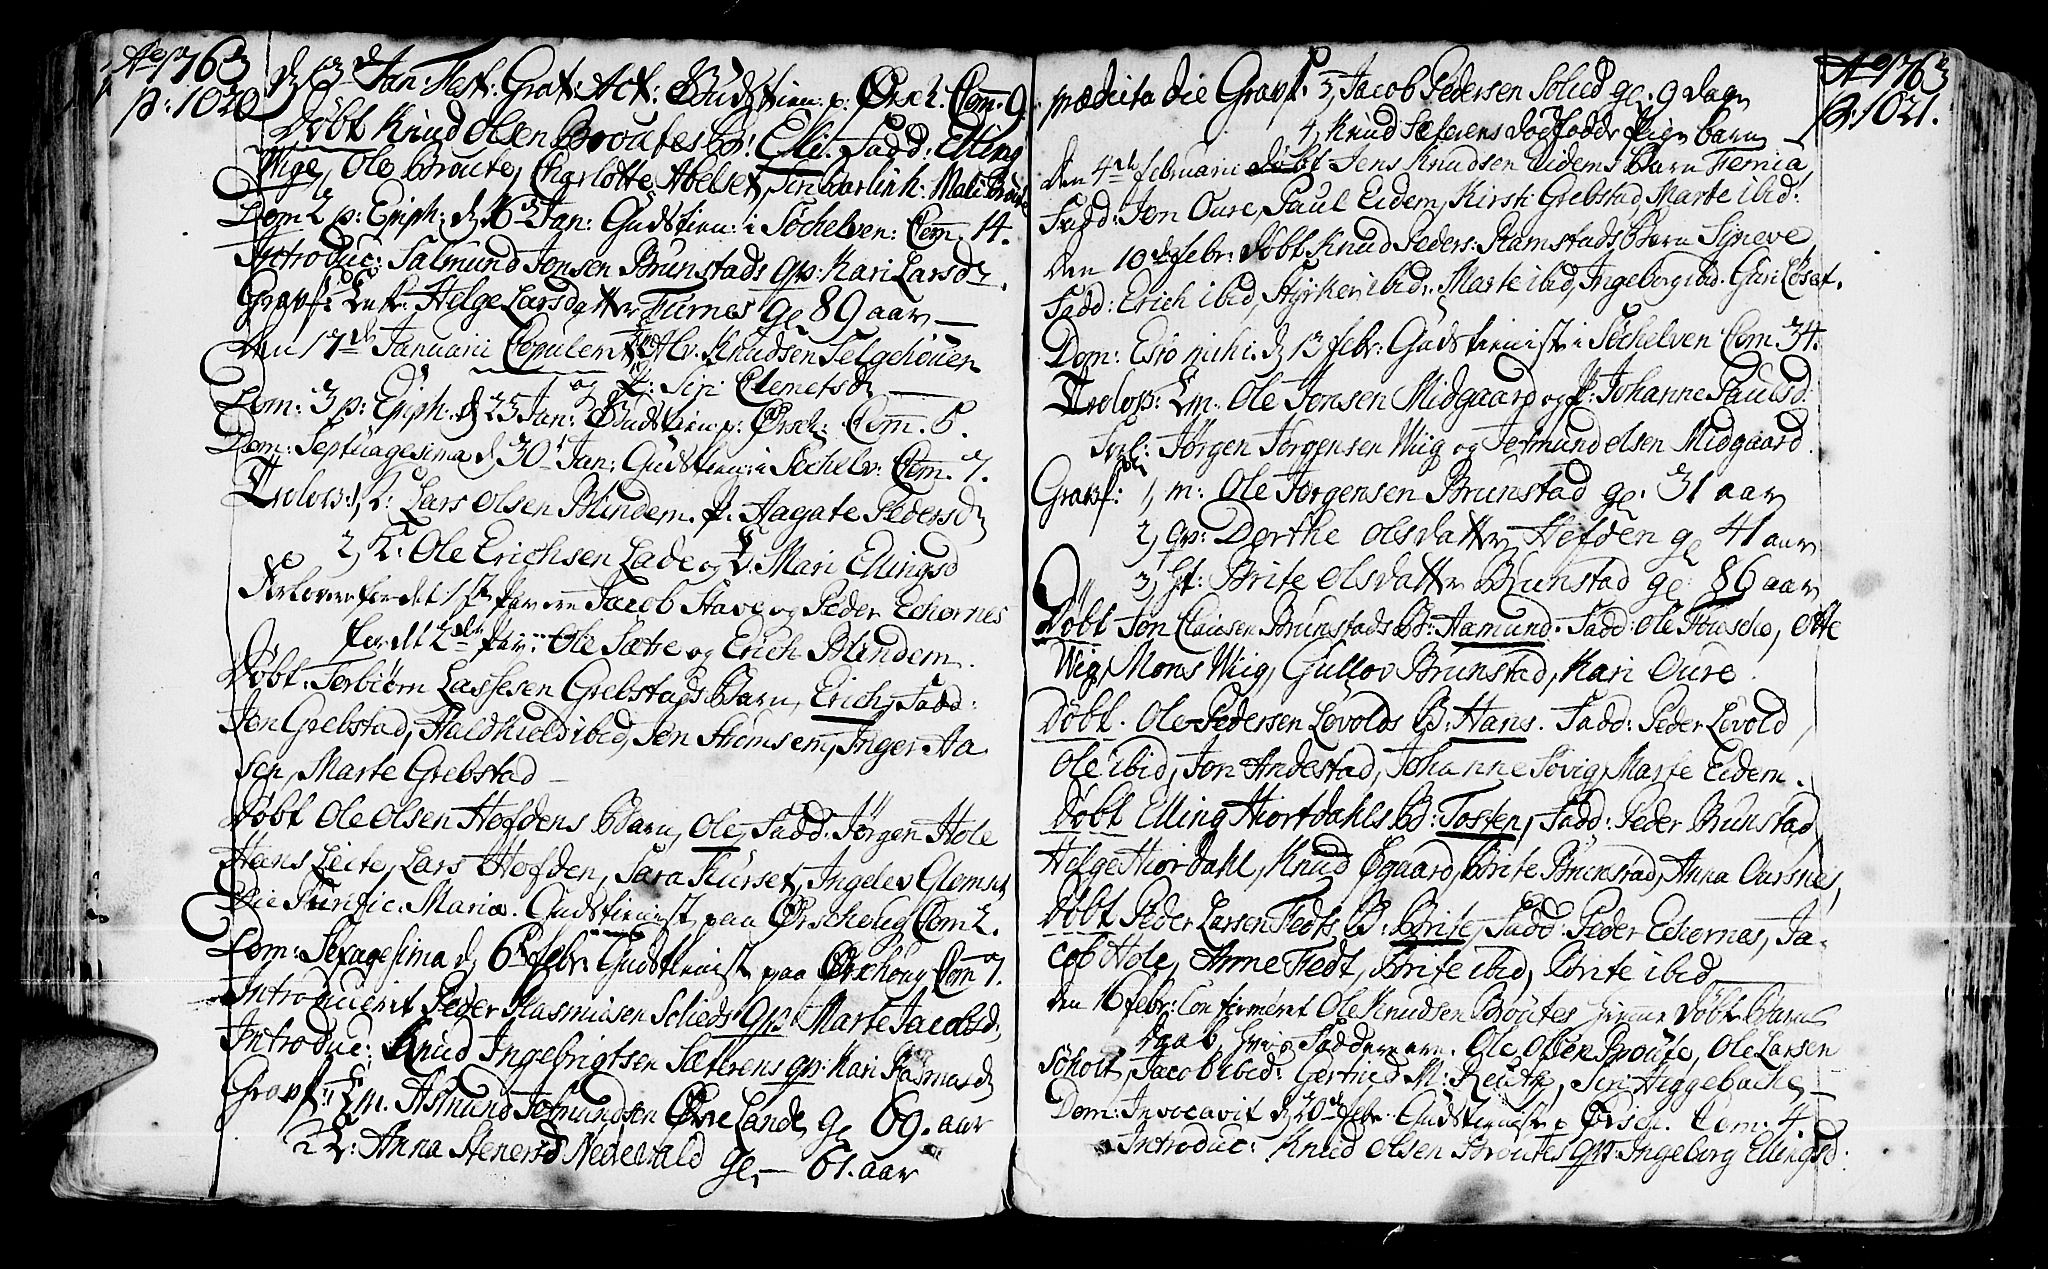 Ao 1763
p: 1020
d 13d Jan: Fest: Grat: Act: Gudstien: p: Ørsch. Com. 9.
Døbt Knud Olsen Broutes B: Elli. Fadd: Elling
Wige, Ole Broute, Charlotte Abelset, Siri Mali Broute
Dom 2 p: Epiph: d 16 Jan: Gudstien: i Søchelven: Com. 14.
Introduc: Salmund Jonsen Brunstads qv: Kari Larsd
Gravf: Enk: Helge Larsdatter Furnes gl 89 aar —
Den 17de Januarii Copuleret Alv. Knudsen Felgehouen
og P: Siri Clemetsd —
Dom: 3 p: Epiph: d 23 Jan: Gudstien p: Ørsch: Com. 6.
Dom: Septuagesima d 30 Jan: Gudstien: i Søchelv: Com. 7.
Trolov: 1, K: Lars Olsen Blindem. P. Aagate Pedersd
2, K: Ole Erichsen Lade og E: Mari Ellingsd
Forlovere for det 1ste par ere Jacob Stave og Peder Echornes
for dt 2det par: Ole Sætre og Erich Blindem.
Døbt: Torbiørn Lassesen Grebstads Barn, Erich, Fadd:
Jon Grebstad, Haldkield ibid, Jon Strømsem, Inger Aa
sen, Marte Grebstad —
Døbt Ole Olsen Hofdens Barn, Ole, Fadd: Jørgen Hole
Hans Leite, Lars Hofden, Sara Kurset, Ingelev Glomset
Die Purific: Mariæ. Gudstienist paa Ørschoug Com 2.
Dom: Sexagesima d, 6t febr: Gudstienist paa Ørschoug Com 7.
Introduceret Peder Rasmusen Solieds Qv: Marte Jacobsd,
Introduc: Knud Ingebrigtsen Sæterens qv: Kari Rasmusd
Gravf: 1 Em. Asmund Jetmundsen Øvre Lande gl 69. aar
2 E: Anna Stenersd Nedrevald gl — 61. aar
Ao 1763
p: 1021.
prædicta die Gravf. 3, Jacob Pedersen Solied gl. 9 dage
4, Knud Sæterens dødfødde Pige barn —
Den 4de februarii døbt Jens Knudsen Eidems Barn
Fadd: Jon Oure, Paul Eidem, Kirsti Grebstad, Marte ibid:
Den 10de febr: døbt Knud Peders: Ramstads Barn Synneve,
Fadd: Erich ibid, Styrker ibid, Marte ibid, Ingeborg ibid: Guri
Dom: Esto mihi. d 13 febr: Gudstienist i Søchelven Com: 34.
Trolov: Em: Ole Jonsen Midgaard og P: Johanne Paulsd:
Forl: Jørgen Jørgensen Wiig og Jetmund Olsen Midgaard.
Gravf: 1, m: Ole Jørgensen Brunstad gl. 31 aar
2, qv: Dorthe Olsdatter Hofden gl 41 aar
3, Brite Olsdatter Brunstad gl 86 aar
Døbt Jon Clausen Brunstads B: Aamund. Fadd: Ole Otte
Wig, Mons Wiig, Gullov Brunstad, Kari Oure.
Døbt. Ole Pedersen Løvolds B: Hans. Fadd: Peder Løvold,
Ole ibid, Jon Andestad, Johanne Søvig, Marte Eidem.
Døbt Elling Hiortdahls B: Tosten, Fadd: Peder Brunstad,
Helge Hiordahl, Knud Øgaard, Brite Brunstad, Anna Oursnes,
Døbt Peder Larsen Fedts B: Brite, Fadd: Peder Echornes, Ja-
cob Hole, Anne Fedt, Brite ibid, Brite ibid —
Den 16 febr: Confirmeret Ole Knudsen Broutes hjemme døbt Barns
daab, hvis Faddere ere: Ole Olsen Broute, Ole Larsen
Søholt, Jacob ibid: Gertrued M: Siri Heggebache —
Dom: Invocavit d 20de febr: Gudstieniste p Ørsch. Com: 4.
Introduc: Knud Olsen Broutes qv: Ingeborg Ellingsd: